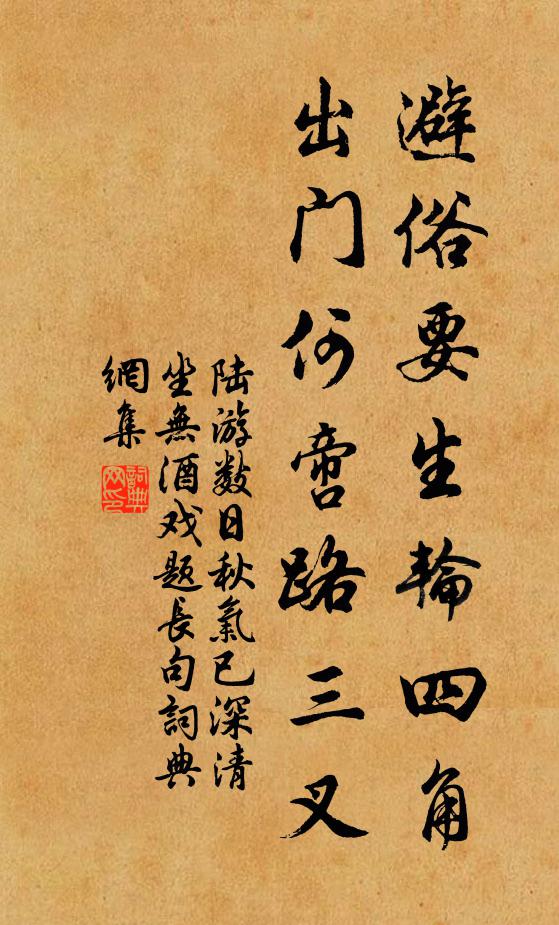 避俗要生輪四角
出門何啻路三叉
陆游数日秋氣已深清
坐無酒戏题長句詞典
網集
詞典
网印